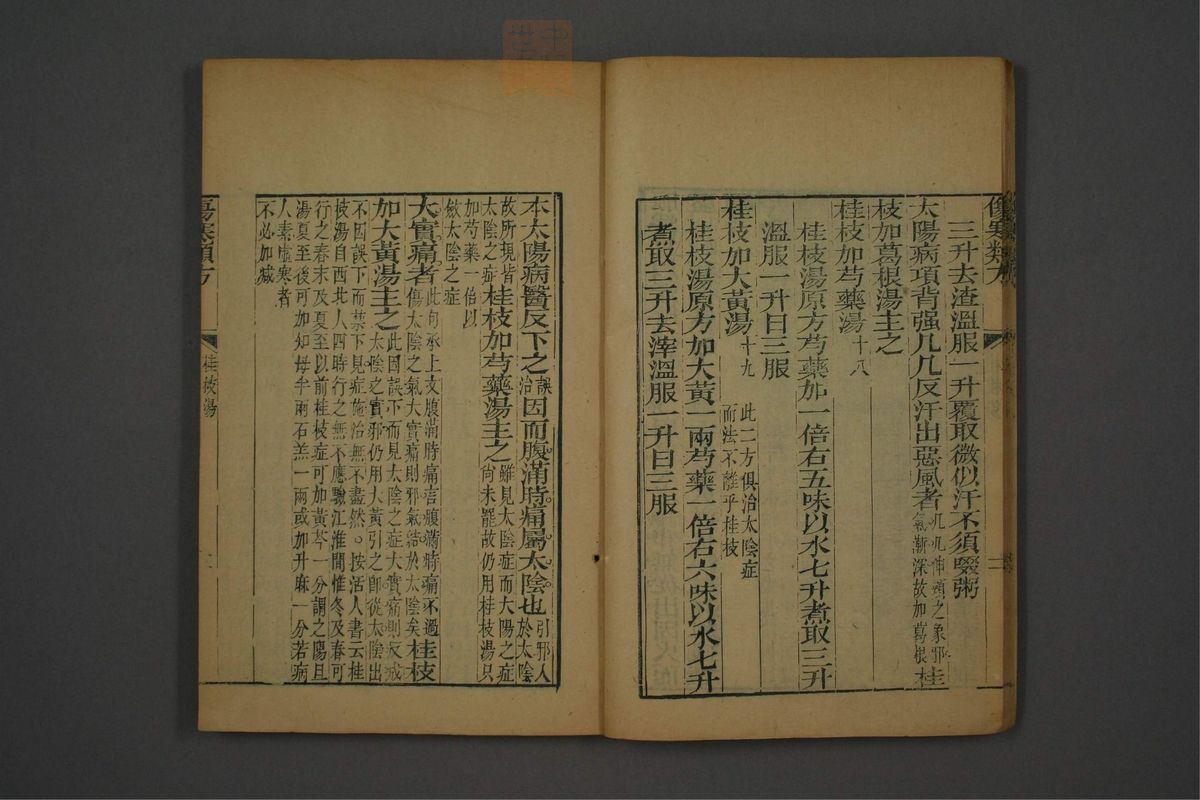 傷寒類方
三升去渣溫服一升覆取微似汗不須啜粥
太陽病項背强几几反汗出惡風者几几伸頸之象邪氣漸深故加葛根桂
枝加葛根湯主之
桂枝加芍藥湯十八
桂枝湯原方芍藥加一倍右五味以水七升煮取三升
溫服一升日三服
桂枝加大黃湯十九此二方俱治太陰症而法不離乎桂枝
桂枝湯原方加大黃一兩芍藥一倍右六味以水七升
煮取三升去滓溫服一升日三服
本太陽病醫反下之誤治因而腹滿時痛屬太陰也引邪入於太陰
故所現皆太陰之症桂枝加芍藥湯主之雖見太陰症而大陽之症尚未罷故仍用桂枝湯只
加芍藥一倍以斂太陰之症
大實痛者此句承上文腹滿時痛言腹滿時痛不過傷太陰之氣大實痛則邪氣結於太陰矣桂枝
加大黃湯主之此因誤下而見太陰之症大實痛則反成太陰之實邪仍用大黃引之卽從太陰出
不因誤下而禁下見症施治無不盡然。按活人書云桂枝湯自西北人四時行之無不應驗江淮間惟冬及春可
行之春末及夏至以前桂枝症可加黃芩一分謂之陽旦湯夏至後可加知母半兩石羔一兩或加升麻一分若病
人素虛寒者不必加減
傷寒類方
桂枝湯